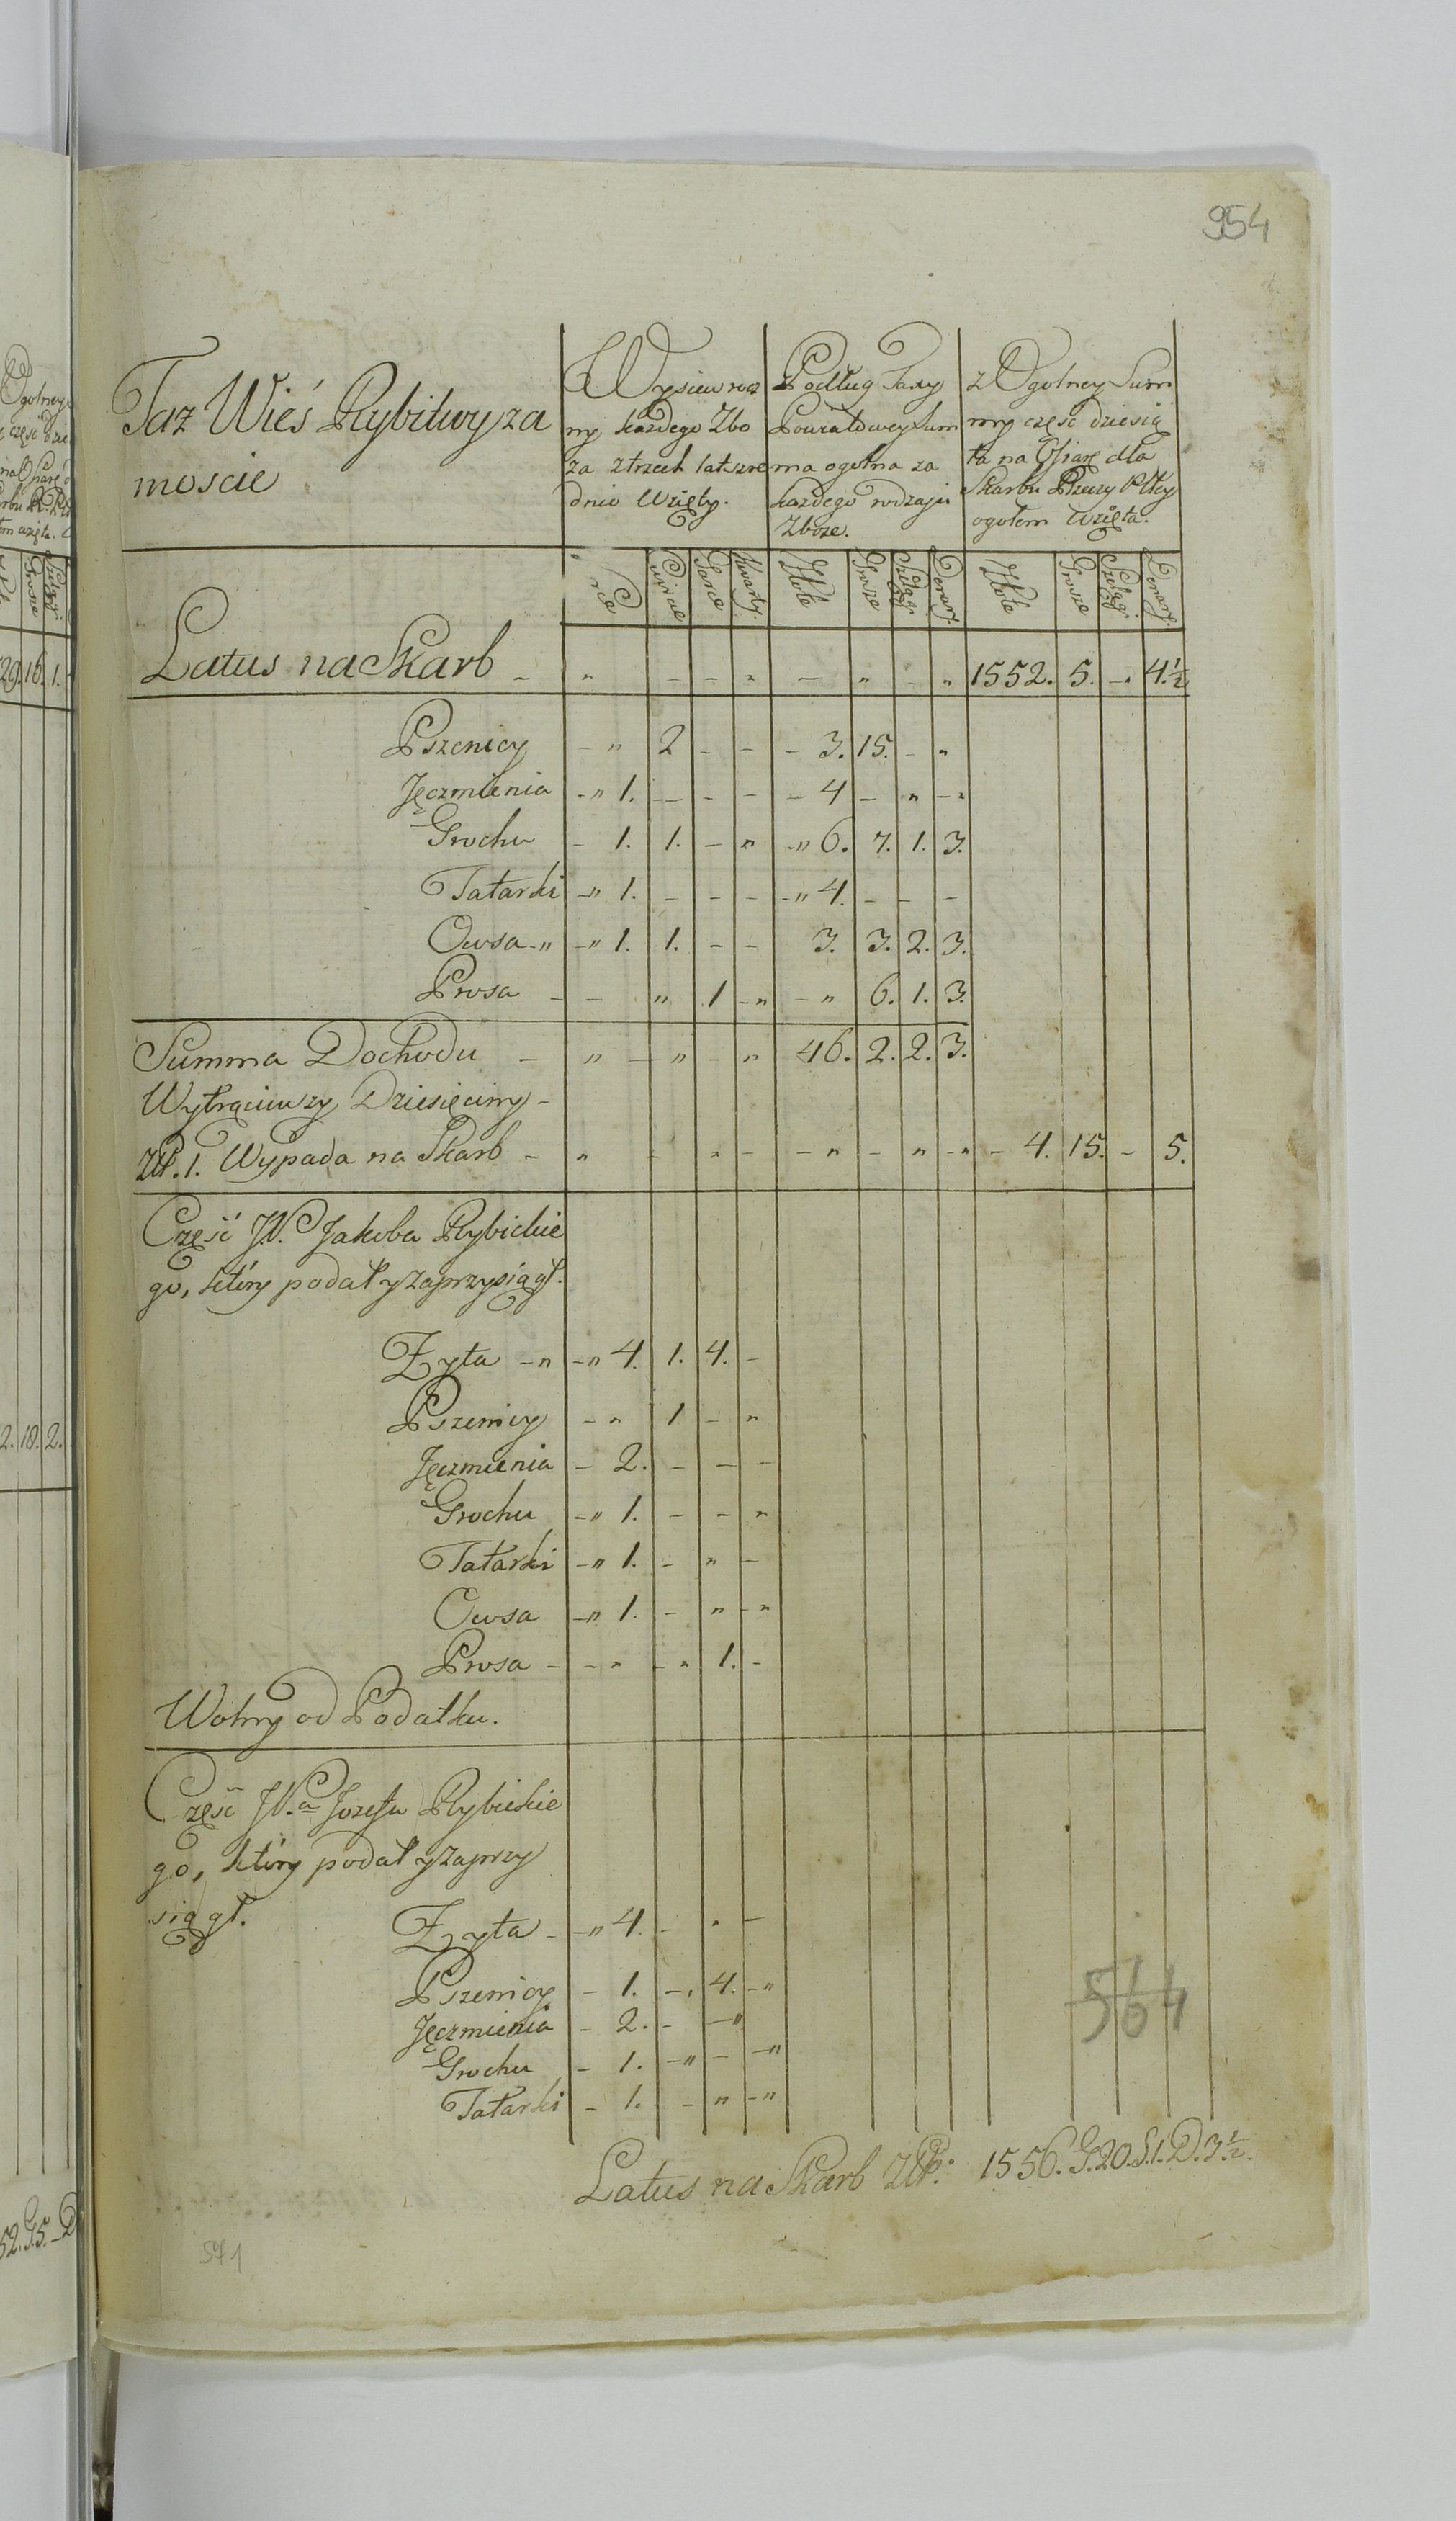 954
Taz Wieś Rybitwy za
moscie
Wysiew rocz
ny każdego Zbo
za z trzech lat sre
dnio Wzięty.
Podług Taxy
Powiatowey Sum
ma ogolna za
każdego rodzaju
Zboże.
z Ogolney Sum
my część dziesią
ta na Ofiarę dla
Skarbu Rzeczy Pltey
ogołem wzięta.
Korce Cwierce Garce Kwarty Złote Grosze Szelągi Denary Złote Grosze Szelągi Denary
Latus na Skarb - " - - " - " - " 1552. 5. -. 4.½
Pszenicy - " 2 - - - 3. 15. - "
Jęczmienia -" 1. - - - - 4 - " -"
Grochu - 1. 1. - " -" 6. 7. 1. 3.
Tatarki -" 1. - - - -" 4. - - -
Owsa -" -" 1. 1. - - 3. 3. 2. 3.
Prosa - - " 1 -" - " 6. 1. 3.
Summa Dochodu - " - " - " 46. 2. 2. 3.
Wytrąciwszy Dziesięciny -
Złł. 1. Wypada na Skarb - " - " - - " - " -" - 4. 15. - 5.
Część JP. Jakoba Rybickie
go, który podał y zaprzysiągł.
Zyta -" -" 4. 1. 4. -
Pszenicy - " 1 - "
Jęczmienia - 2. - - -
Grochu -" 1. - - "
Tatarki -" 1. - " -
Owsa -" 1. - " -"
Prosa - - " - " 1. -
Wolny od Podatku.
Część JP.a Jozefa Rybickie
go, który podał y zaprzy
siągł.
Zyta - -" 4. - " -
Pszenicy - 1. -, 4. -"
Jęczmienia - 2. - -"
Grochu - 1. -" - -"
Tatarki - 1. - " -"
564
Latus na Skarb Złł: 1556. G. 20. S. 1. D. 3½.
571
Ogolney
część dzie
na Ofiarę
wzięta.
Grosze Szelągi
29. 16. 1.
2. 18. 2.
52. G. 5. - D